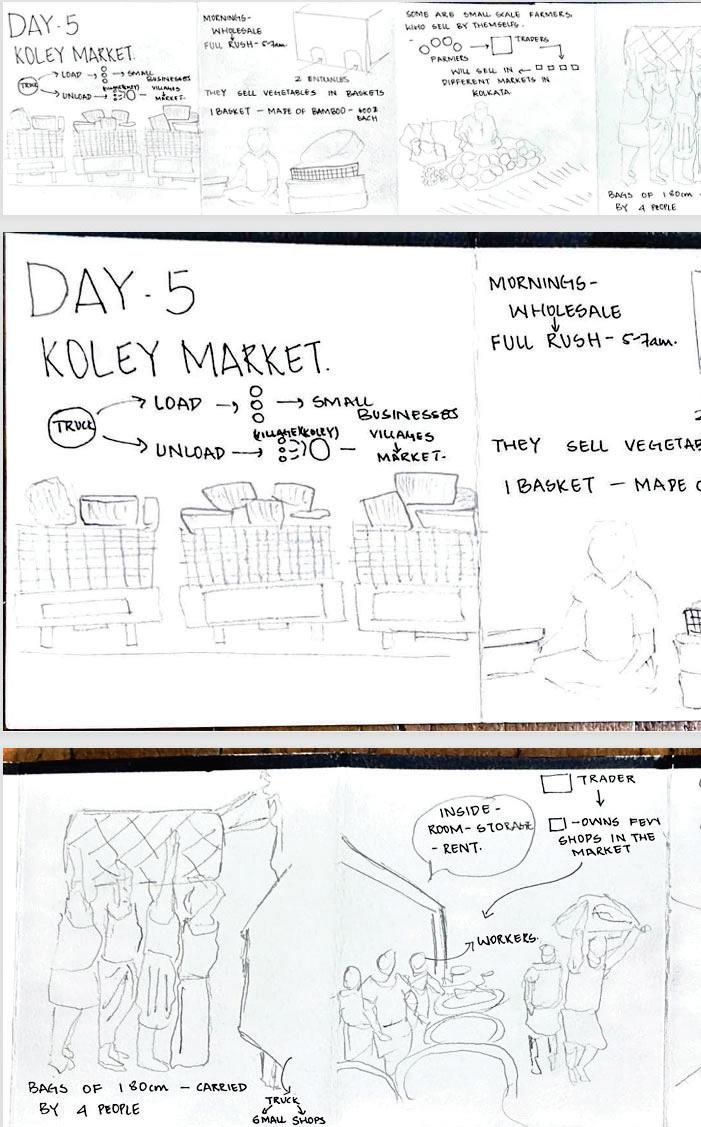 DAY-5
KOLEY MARKET.
TRUCK
LOAD
SMALL
BUSINESSES
UNLOAD
(VILLAGE)(KOLEY)
VILLAGES
MARKET.
MORNINGS-
WHOLESALE
FULL RUSH - 5-7am.
2 ENTRANCES
THEY SELL VEGETABLES IN BASKETS
1 BASKET - MADE OF BAMBOO -
EACH
SOME ARE SMALL SCALE FARMERS,
WHO SELL BY THEMSELF.
TRADERS
FARMERS
WILL SELL IN
DIFFERENT MARKETS IN
KOLKATA
BAGS OF 180cm -
BY 4 PEOPLE
DAY-5
KOLEY MARKET.
TRUCK
LOAD
SMALL
BUSINESSES
UNLOAD
(VILLAGE)(KOLEY)
VILLAGES
MARKET.
MORNINGS-
WHOLESALE
FULL RUSH - 5-7am.
THEY SELL VEGETAB
1 BASKET - MADE O
TRADER
INSIDE -
ROOM - STORAGE
- RENT.
- OWNS FEW
SHOPS IN THE
MARKET
WORKERS.
BAGS OF 180cm - CARRIED
BY 4 PEOPLE
TRUCK
SMALL SHOPS